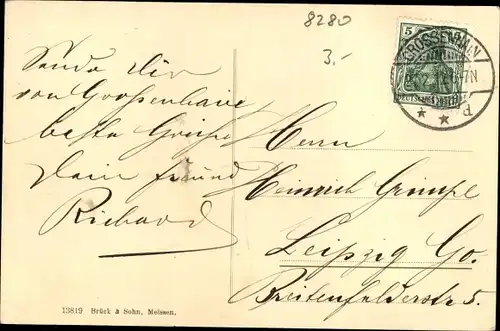 8280
3.-
5
GROSSENHAIN
Sende Dir
von Großenhain
beste Grüße
Dein Freund
Richard
Herrn
Heinrich Grimpe
Leipzig Go.
Breitenfelderstr 5.
13819 Brück & Sohn, Meissen.